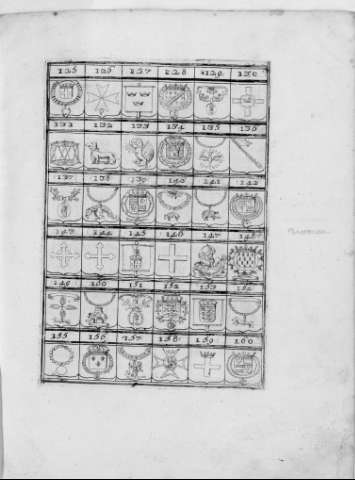 125 126 127 128 129 130
131 132 133 134 135 136
137 138 139 140 141 142
143 144 145 146 147 148
149 150 151 152 153 154
155 156 157 158 159 160